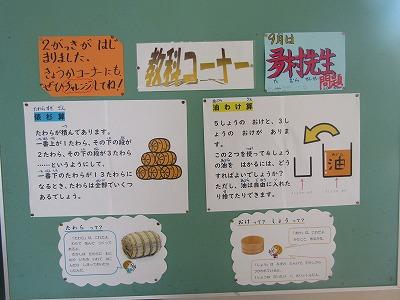 2がっきが はじ
まりました。
きょうかコーナーにも
ぜひチャレンジしてね!
教科コーナー
9月は
多村先生
問題
たわらすぎ ざん
俵杉算
たわらが積んであります。
一番上が1たわら、その下の段が
2たわら、その下の段が3たわら
……というようにして、
一番下のたわらが13たわらに
なるとき、たわらは全部でいくつ
あるでしょう。
油わけ算
5しょうの おけと、3し
ょうの おけがありま
す。
この2つを使って4しょう
の油を はかるには、どう
すればよいでしょうか?
ただし、油は自由に入れた
り捨てたりできます。
油
たわら って?
おけって? しょうって?